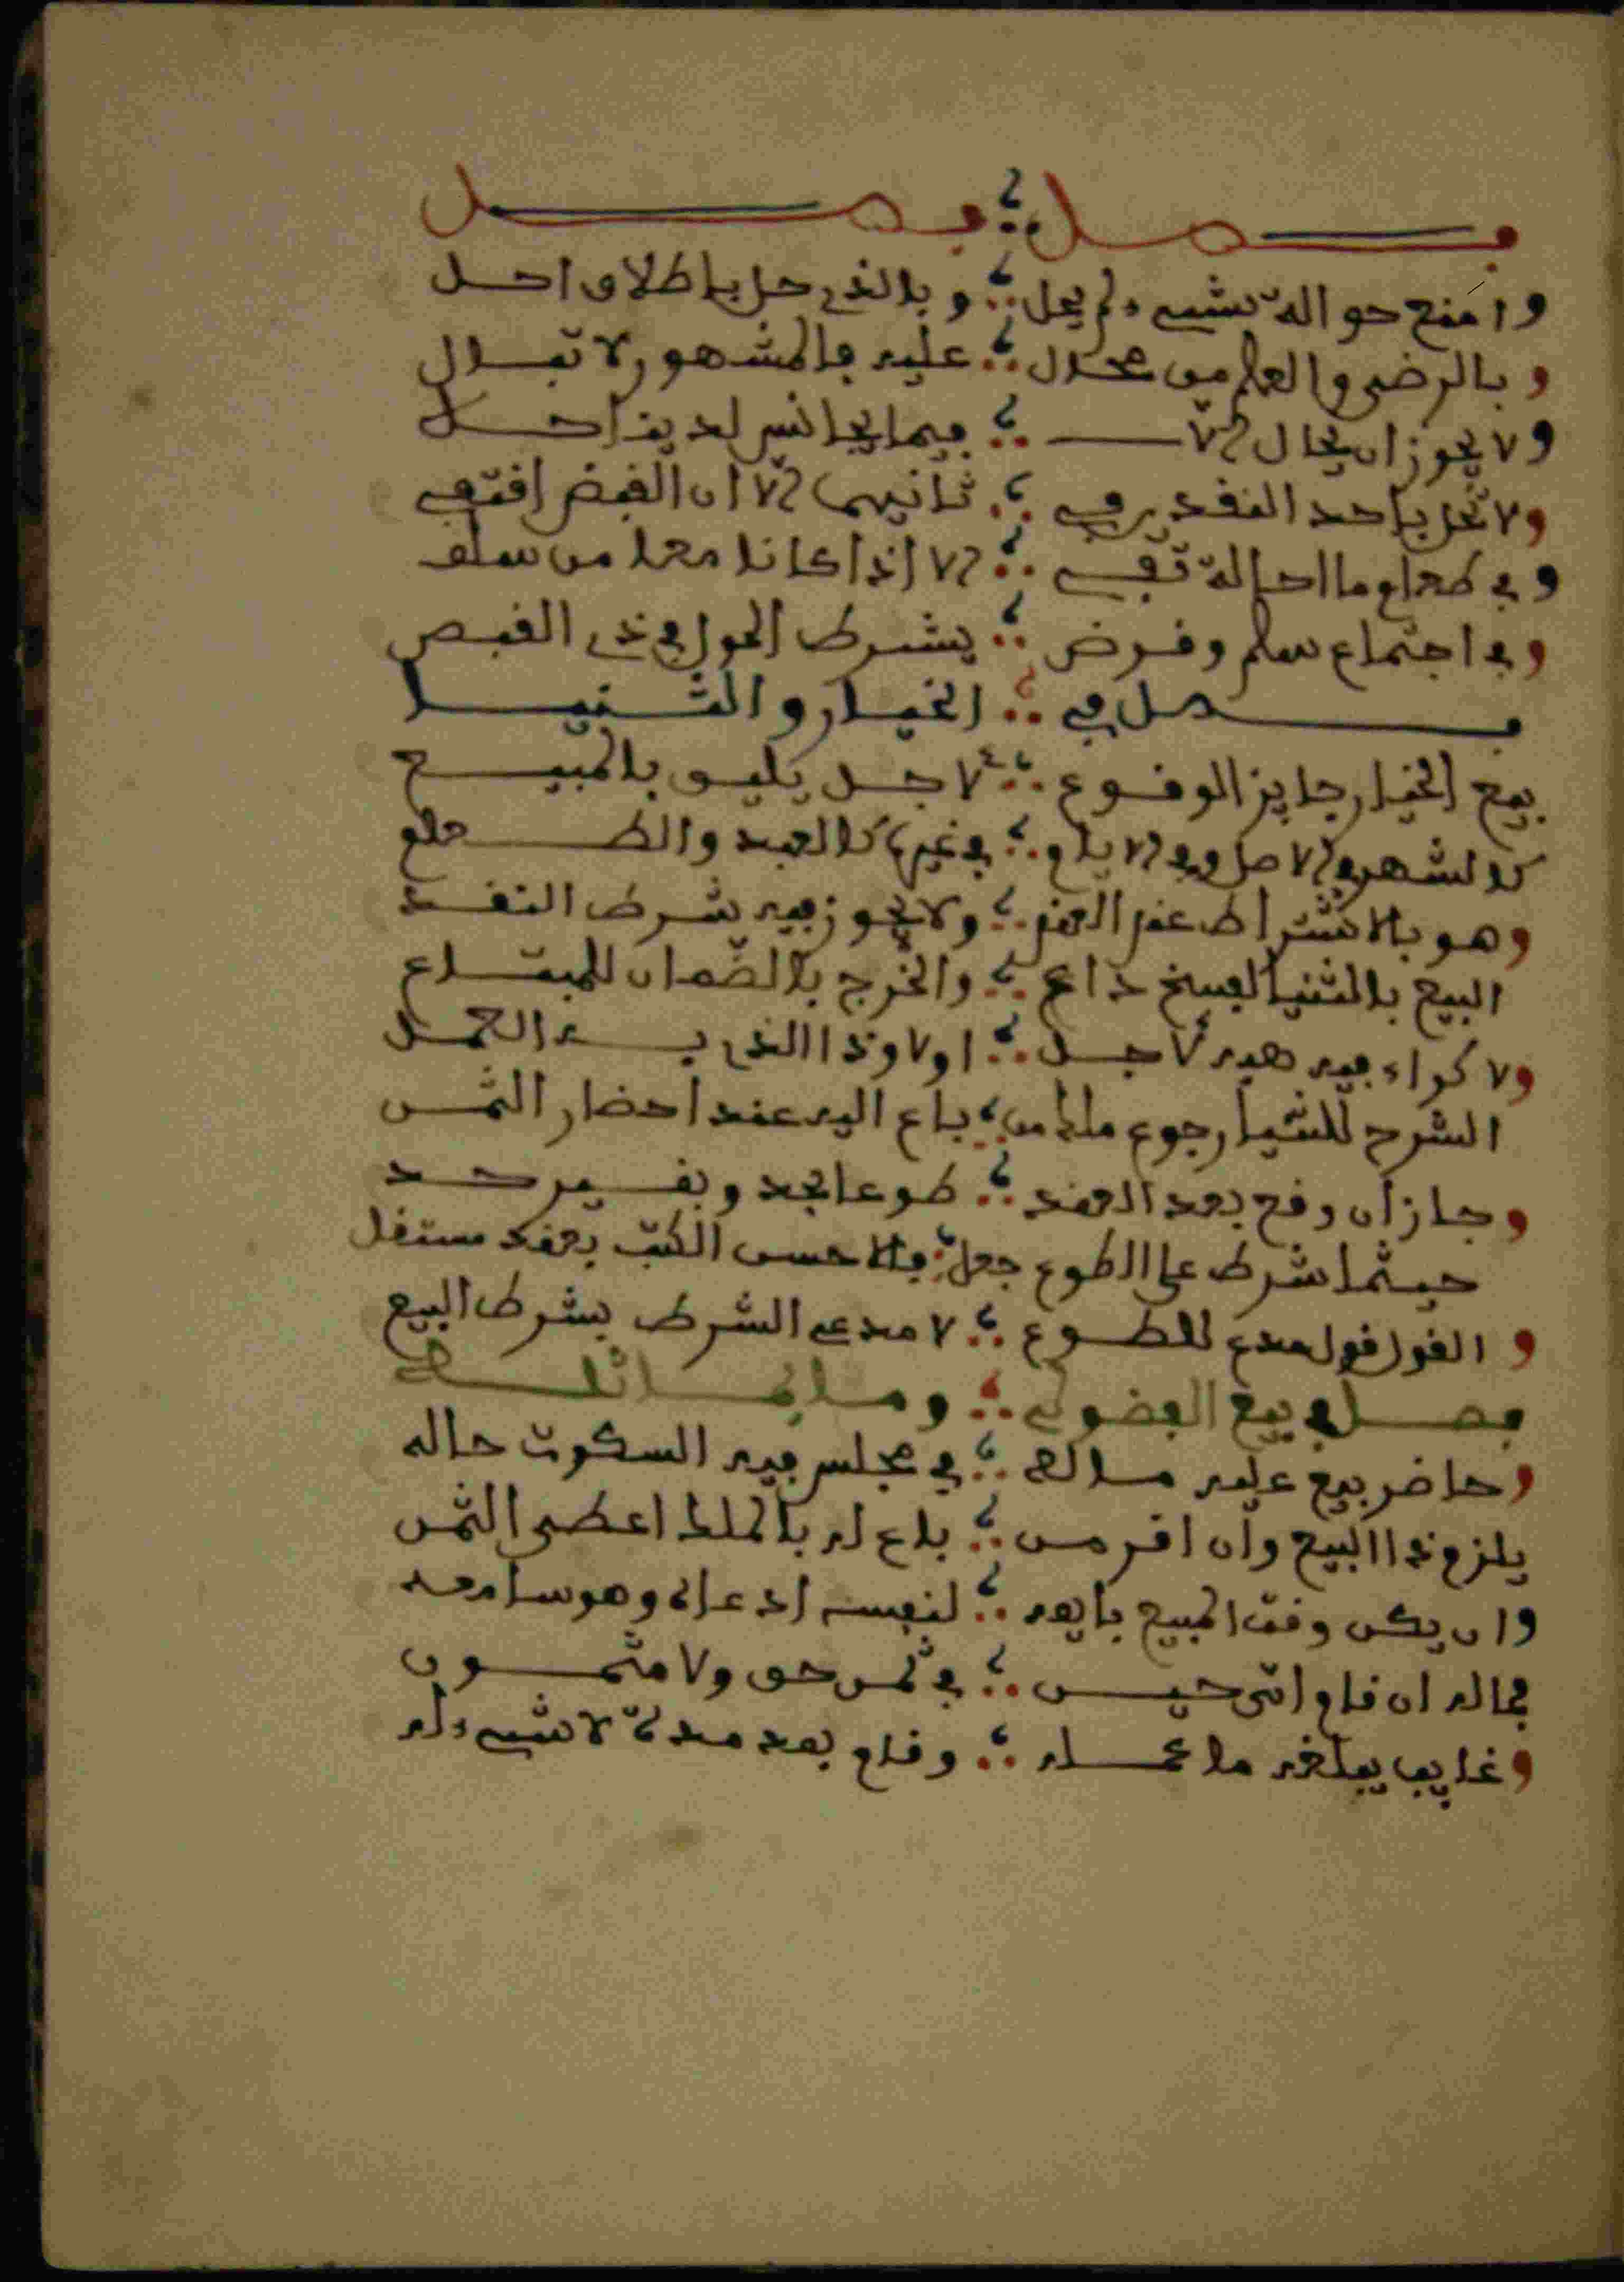 فصل ؛ فصل
وامنع حوالة بشيء لم يحل ∴ وبالذي حل باطلاق احل
وبالرضى والعلم من محال ∴ عليه فالمشهور لا تبال
ولا يجوز ان يحال الا ∴ فيما يجانس لدين احلا
ولا تحل باحد النقدين في ∴ ثانيهما الا ان القبض اقتفي
وفي طعام ما احالة تفي ∴ الا اذا كانا معا من سلف
وفي اجتماع سلم وقرض ∴ يشترط الحول في ذي القبض
فصل في ∴ الخيار والثنيا
بيع الخيار جايز الوقوع ∴ لاجل يليق بالمبيع
كالشهر في الاصل وفي الايام ∴ في غيرها كالعبد والطعام
وهو بالاشتراط عند العقد ∴ ولا يجوز فيه شرط النقد
البيع بالثنيا لفسخ داع ∴ والخرج بالضمان للمبتاع
ولا كراء فيه هبه لاجل ∴ او لا وذا الذي به العمل
الشرح للثنيا رجوع ملك من ∴ باع اليه عند احضار الثمن
وجاز ان وقع بعد العقد ∴ طوعا بحد وبغير حد
حيثما شرط على الطوع جعل ∴ فالاحسن الكتب بعقد مستقل
والقول قول مدع للطوع ∴ لا مدعي الشرط بشرط البيع
فصل في بيع الفضولي ∴ وما يماثله
وحاضر بيع عليه ماله ∴ في مجلس فيه السكوت حاله
يلزم ذا البيع وان اقر من ∴ باع له بالملك اعطي الثمن
وان يكن وقت المبيع بايعه ∴ لنفسه ادعاه وهو سامعه
فما له ان قام اي حين ∴ في ثمن حق ولا مثمون
وغايب يبلغه ما عمله ∴ وقام بعد مدة لا شيء له